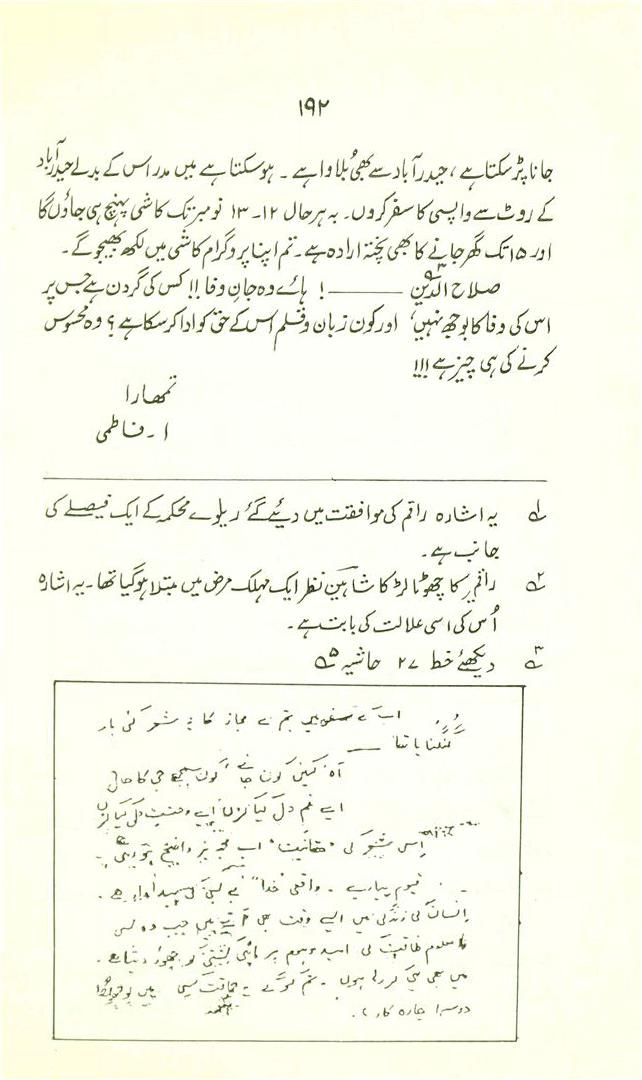 ۱۹۲
جانا پڑ سکتا ہے، حیدرآباد سے بھی بُلاوا ہے۔ ہو سکتا ہے میں مدراس کے بدلے حیدرآباد
کے روٹ سے واپسی کا سفر کروں۔ بہ ہر حال ۱۲۔۱۳ نومبر تک کاشی پہنچ ہی جاؤں گا
اور ۱۵ تک گھر جانے کا بھی پختہ ارادہ ہے۔ تم اپنا پروگرام کاشی میں لکھ بھیجو گے۔
صلاح الدّین ۳ ——— ! ہائے وہ جانِ وفا !! کس کی گردن ہے جس پر
اس کی وفا کا بوجھ نہیں، اور کون زبان و قلم اس کے حق کو ادا کر سکتا ہے؟ وہ محسوس
کرنے کی ہی چیز ہے !!!
تمھارا
ا۔ فاطمی
۱ یہ اشارہ راقم کی موافقت میں دیئے گئے ریلوے محکمہ کے ایک فیصلے کی
جانب ہے۔
۲ راقم کا چھوٹا لڑکا شاہین نظر ایک مہلک مرض میں مبتلا ہو گیا تھا۔ یہ اشارہ
اُس کی اسی علالت کی بابت ہے۔
۳ دیکھئے خط ۲۷ حاشیہ ۵
اب کے تم نے مجاز کا یہ شعر کئی بار
گنگنایا تھا ——
آہ لیکن کون جانے، کون سمجھے جی کا حال
اے غم دل کیا کروں اے وحشت دل کیا کروں
اس شعر کی "حقانیت" اب مجھ پر واضح ہو رہی ہے
قیوم پیارے۔ واقعی "خدا" بے بسی کی
انسان کی زندگی میں ایسے وقت بھی آتے ہیں جب وہ کسی
نا معلوم طاقت کی امید وہوم پر اپنی کشتی کو چھوڑ دیتا ہے۔
میں بھی یہی کر رہا ہوں۔ تم کہو گے یہ حماقت سہی
دوسرا چارہ کار؟